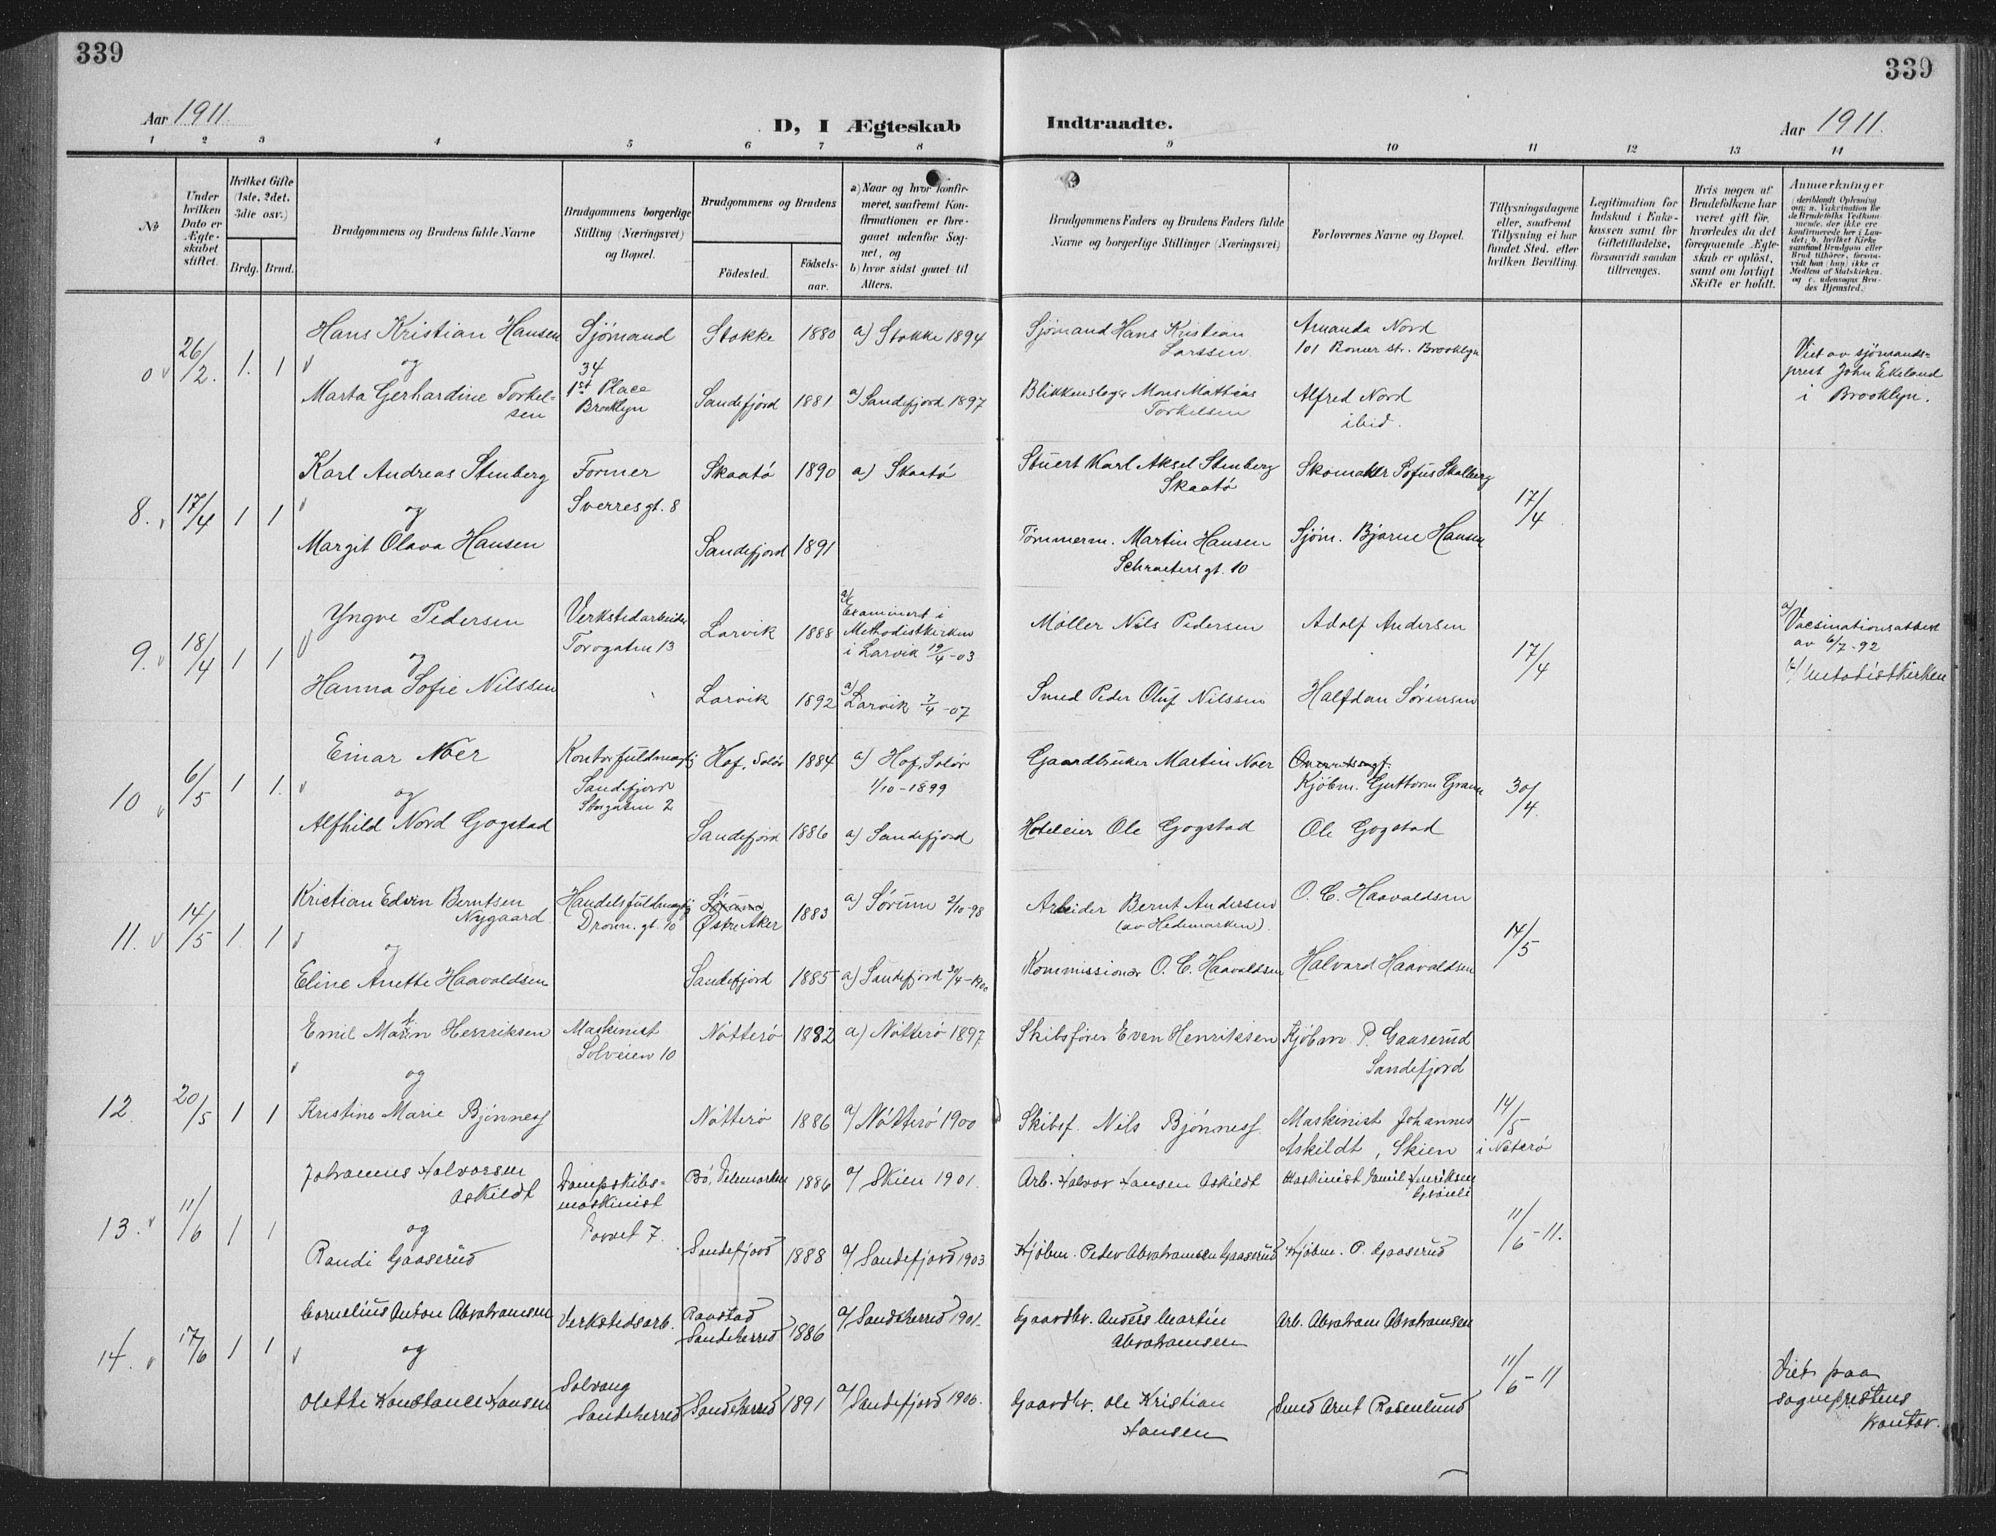 339
339
Aar 1911.
D, I Ægteskab
Indtraadte.
Aar 1911.
1 2 3 4 5 6 7 8 9 10 11 12 13 14
No
Under hvilken Dato er Ægteskabet stiftet.
Hvilket Gifte (1ste, 2det, 3die osv.)
Brdg. Brud.
Brudgommens og Brudens fulde Navne
Brudgommens borgerlige Stilling (Næringsvei) og Bopæl.
Brudgommens og Brudens
Fødested.
Fødselsaar.
a) Naar og hvor konfirmeret, saafremt Konfirmationen er foregaaet udenfor Sognet, og
b) hvor sidst gaaet til Alters.
Brudgommens Faders og Brudens Faders fulde Navne og borgerlige Stillinger (Næringsvei)
Forlovernes Navne og Bopæl.
Tillysningsdagene eller, saafremt Tillysning ei har fundet Sted, efter hvilken Bevilling.
Legitimation for Indskud i Enkekassen samt for Giftetilladelse, forsaavidt saadan tiltrænges.
Hvis nogen af Brudefolkene har været gift før, hvorledes da det foregaaende Ægteskab er opløst, samt om lovligt Skifte er holdt.
Anmerkninger
0 26/2. 1. 1
Hans Kristian Hansen
og
Marta Gerhardine Torkelsen
Sjømand
34
1st Place
Brooklyn
Stokke 1880 a) Stokke 1894
Sandefjord 1881 a) Sandefjord 1897
Sjømand Hans Kristian Larssen
Blikkenslager Mons Mattias Torkelsen
Amanda Nord
101 Bomer str. Brooklyn
Alfred Nord
ibid.
Viet av sjømandsprest John Ekeland
i Brooklyn.
8. 17/4 1 1
Karl Andreas Stenberg
og
Margit Olava Hansen
Former
Sverresgt. 8
Skaatø 1890 a) Skaatø
Sandefjord 1891
Stuert Karl Aksel Stenberg
Skaatø
Tømmerm. Martin Hansen
Schroetersgt. 10
Skomaker Sofus Skalberg
Sjøm. Bjarne Hansen
17/4
9. 18/4 1 1
Yngve Pedersen
og
Hanna Sofie Nilssen
Verkstedarbeider
Torvgaten 13
Larvik 1888
Examinert i
Methodistkirken
i Larvik 19/4-03
Larvik 1892 a) Larvik 7/4-07
Møller Nils Pedersen
Smed Peder Oluf Nilssen
Adolf Andersen
Halfdan Sørensen
17/4
a) Vacsinationsattest
av 6/7-92
b) Metodistkirken
10 6/5 1 1.
Einar Noer
og
Alfhild Nord Gogstad
Kontorfuldmægtig
Sandefjord
Storgaten 2
Hof, Solør 1884 a) Hof, Solør
1/10-1899
Sandefjord 1886 a) Sandefjord
Gaardbruker Martin Noer
Hoteleier Ole Gogstad
Kjøbm. Guttorm Gram
Ole Gogstad
30/4.
11. 14/5 1. 1
Kristian Edvin Berntsen Nygaard
og
Eline Anette Haavaldsen
Handelsfuldmægtig
Dronn. gt. 10
Østre Aker 1883 a) Sørum 2/10-98
Sandefjord 1885 a) Sandefjord 30/4-1900
Arbeider Bernt Andersen
(av Hedemarken).
Kommissionær O. C. Haavaldsen
O. C. Haavaldsen
Halvard Haavaldsen
14/5
12 20/5 1 1
Emil Martin Henriksen
og
Kristine Marie Bjønness
Maskinist
Solveien 10
Nøtterø 1882 a) Nøtterø 1897
Nøtterø 1886 a) Nøtterø 1900
Skibsfører Even Henriksen
Skibsf. Nils Bjønness.
Kjøbm. P. Gaaserud
Sandefjord
Maskinist Johannes
Askildt, Skien
14/5
i Nøterø
13. 11/6 1 1
Johannes Halvorsen Askildt
og
Randi Gaaserud
Dampskibsmaskinist
7.
Bø, Telemarken 1886 a) Skien 1901.
Sandefjord 1888 a) Sandefjord 1903
Arb. Halvor Hansen Askildt
Kjøbm. Peder Abrahamsen Gaaserud
Maskinist Emil Henriksen
Kjøbm. P. Gaaserud
11/6-11.
14. 17/6 1 1
Cornelius Anton Abrahamsen
og
Olette Konstance Hansen
Verkstedsarb.
Solvang
Sandeherred
Raastad
Sandeherred 1886 a) Sandeherred 1901.
Sandeherred 1891 a) Sandefjord 1906.
Gaardbr. Anders Martin Abrahamsen
Gaardbr. Ole Kristian Hansen
Arb. Abraham Abrahamsen
Smed Arnt Rosenlund
11/6-11
Viet paa
sogneprestens
kontor.